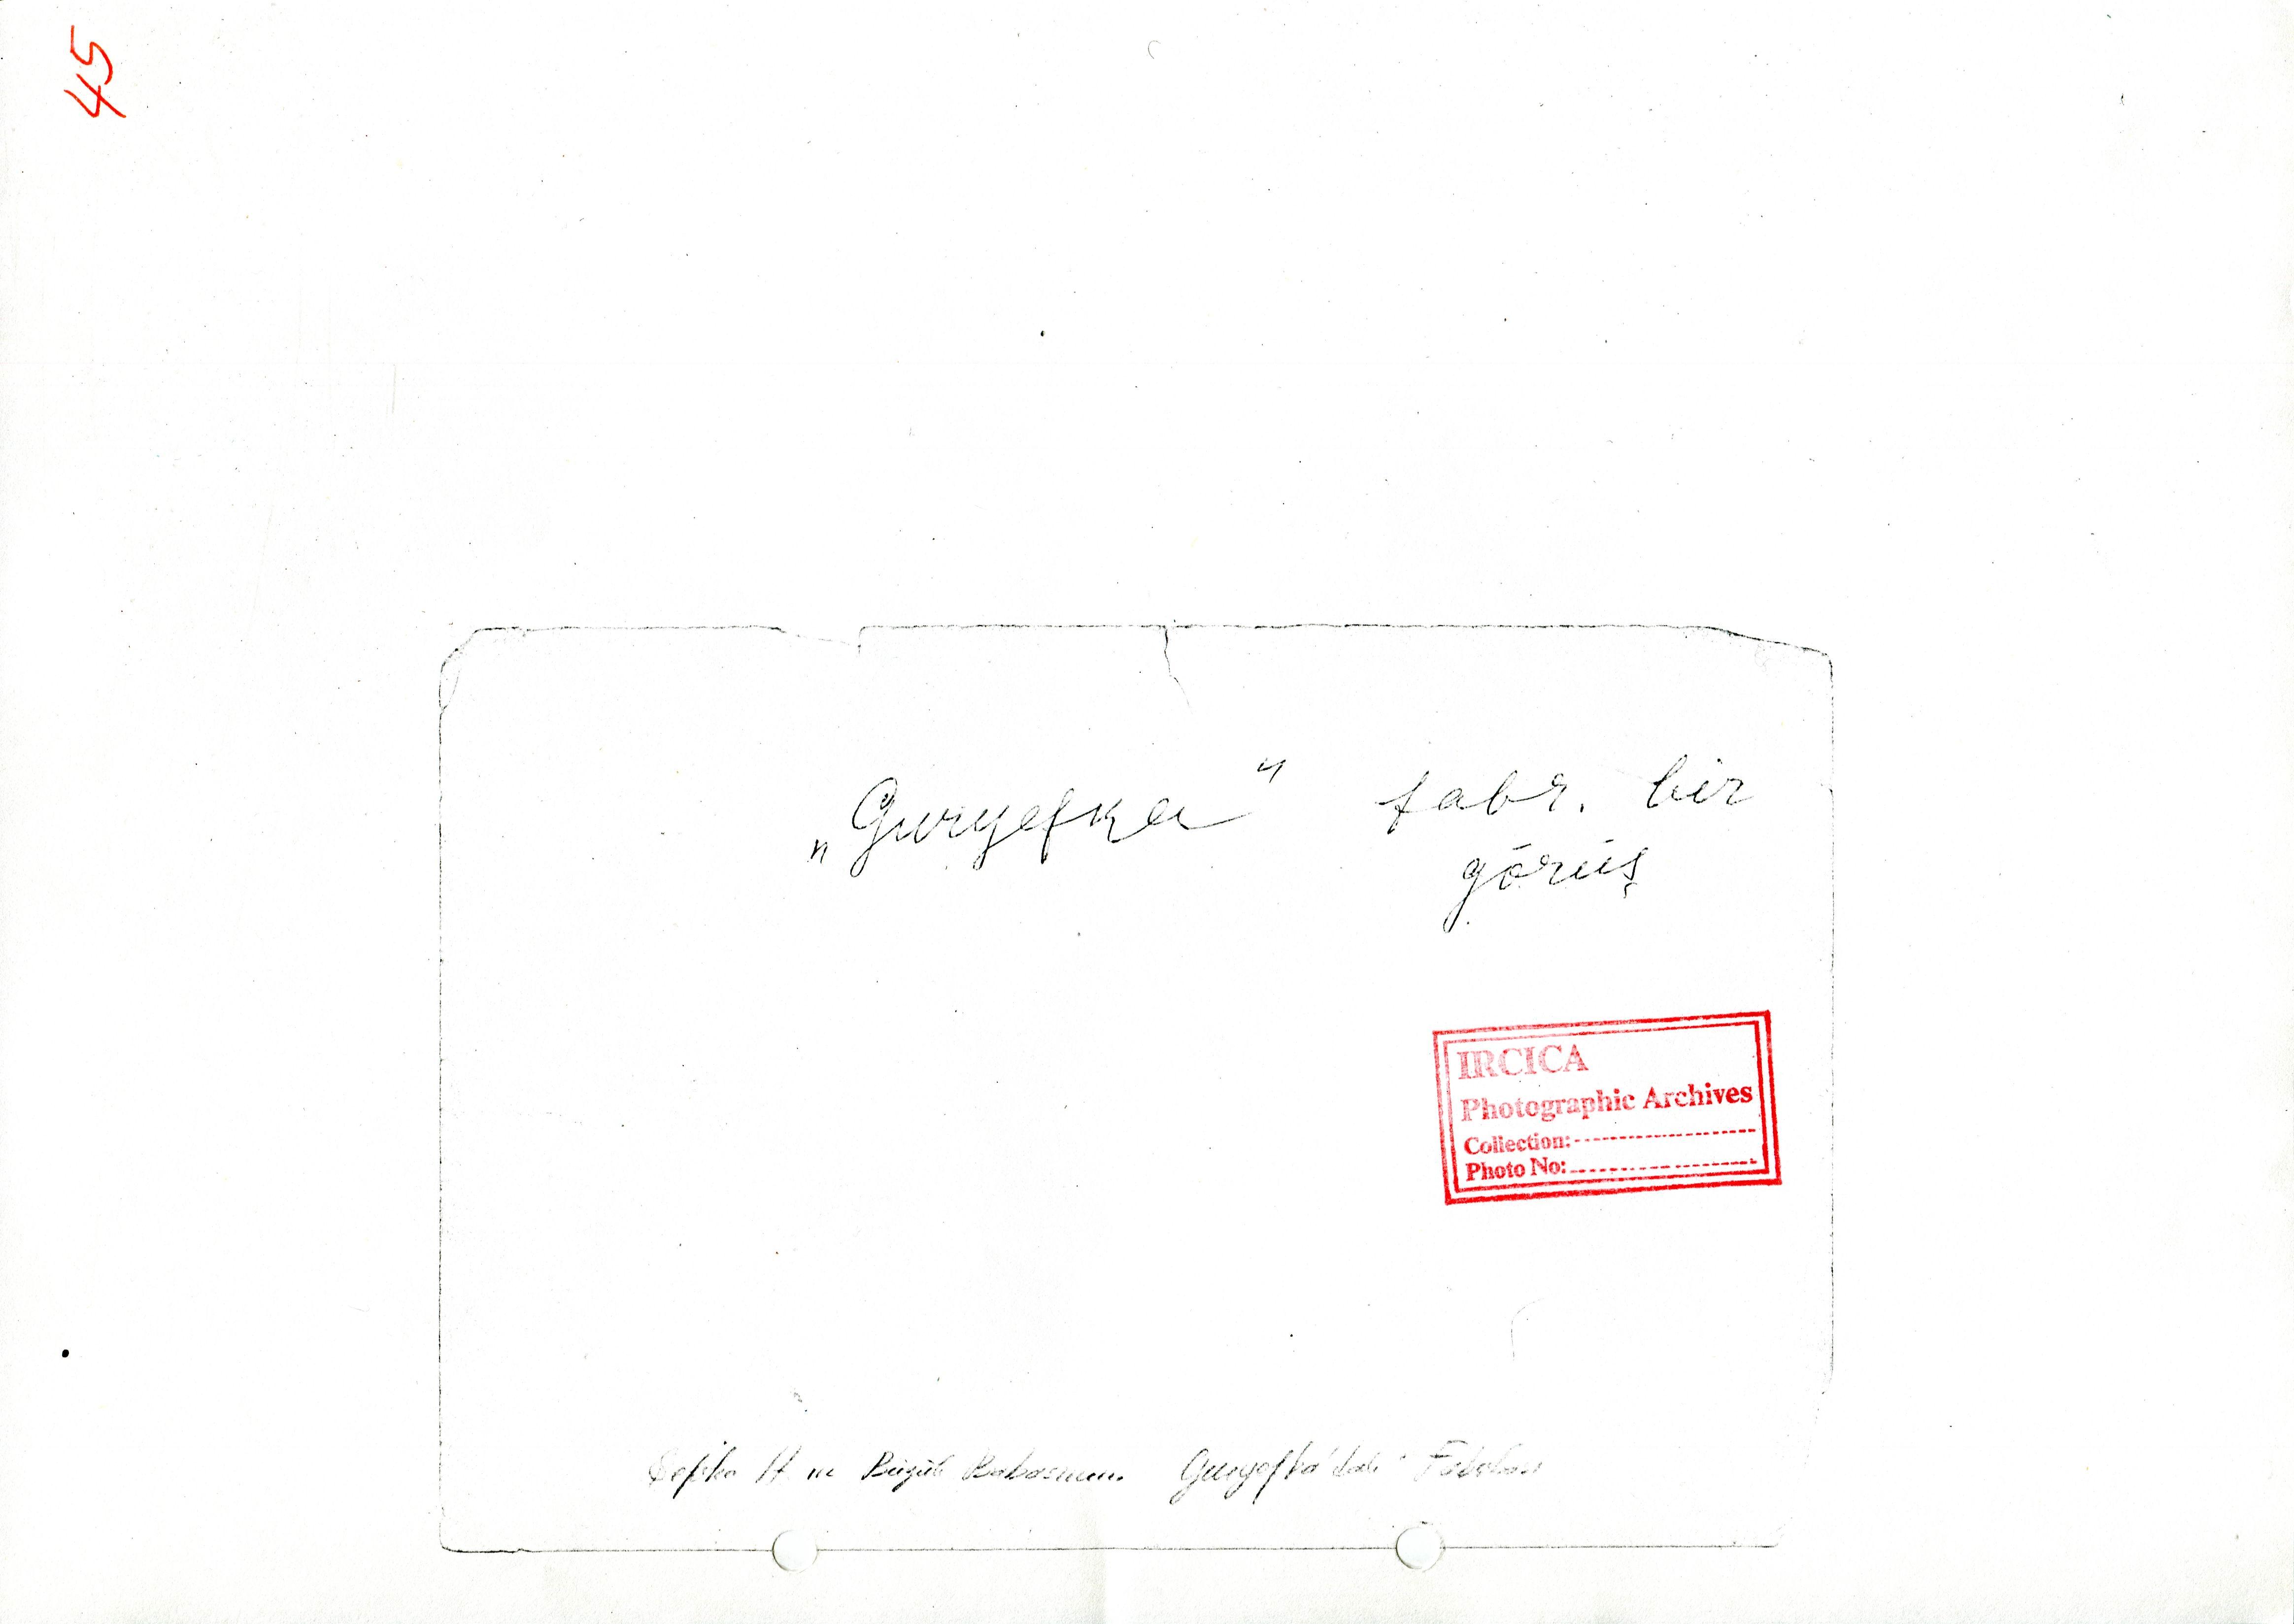 45
„Guryefka" fabr. bir
görüş
IRCICA
Photographic Archives
Collection:
Photo No:
Şefika H. ın Büyük Babasının Guryefka'daki Fabrikası